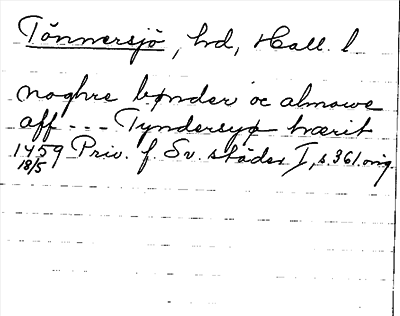 Tönnersjö, hd, Hall. l
noghre bønder oc almowe
aff --- Tyndersyø hærit
1459 Priv. f. Sv. städer I, s. 361. orig.
18/5